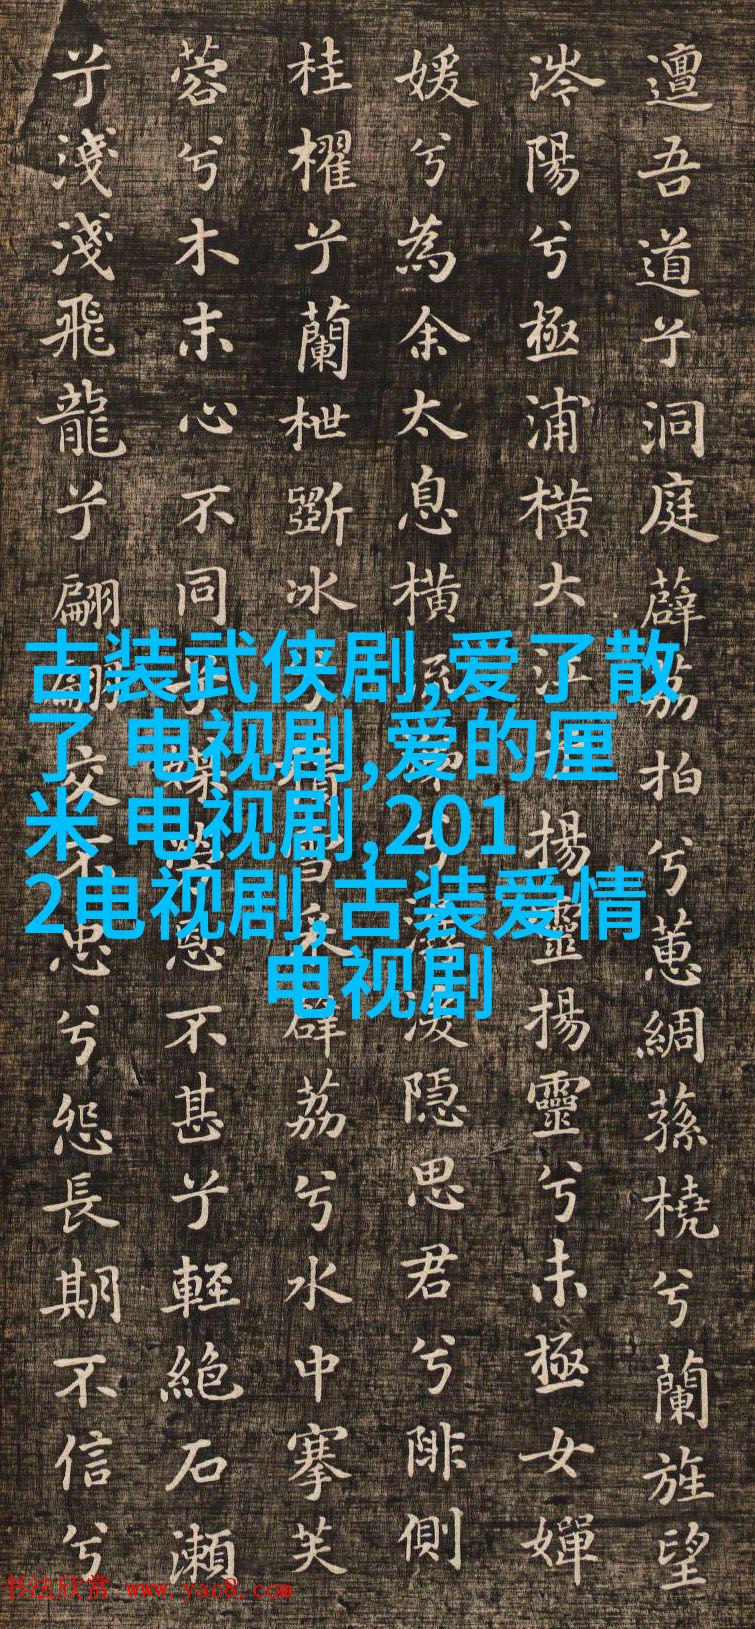 邅吾道兮洞庭薜荔柏兮蕙綢蓀橈兮蘭旌望
涔陽兮極浦橫大江兮揚靈揚靈兮未極女嬋
媛兮為余太息橫涕兮潺湲隱思君兮陫側
桂櫂兮蘭枻斲冰兮積雪采薜荔兮水中搴芙
蓉兮木末心不同兮媒勞恩不甚兮輕絕石瀨
兮淺淺飛龍兮翩翩交不忠兮怨長期不信兮
古装武侠剧,爱了散
了 电视剧,爱的厘
米 电视剧,201
2电视剧,古装爱情
电视剧
书法欣赏 www.yac8.com